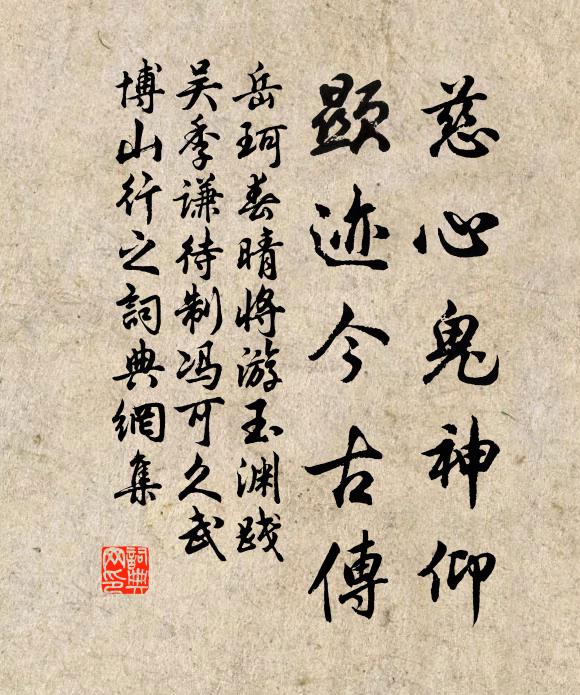 慈心鬼神仰
顯迹今古傳
岳珂春晴将游玉渊践
吴季谦待制冯可久武
博山行之詞典網集
詞典网印